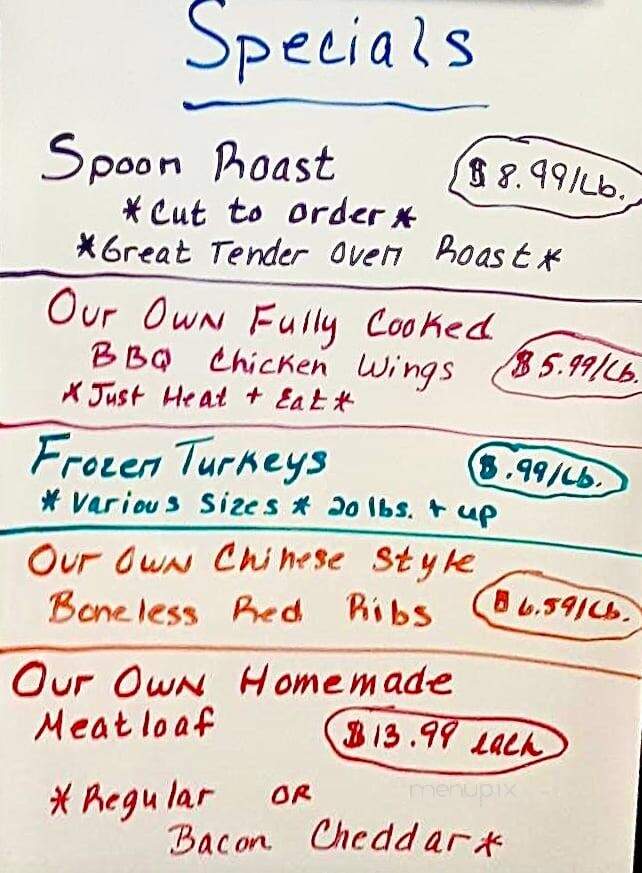 Specials
Spoon Roast $8.99/Lb.
*Cut to order*
*Great Tender oven Roast*
Our Own Fully Cooked
BBQ Chicken Wings $5.99/Lb.
*Just Heat + Eat*
Frozen Turkeys $.99/Lb.
*Various Sizes* 20 lbs. + up
Our Own Chinese Style
Boneless Red Ribs $6.59/Lb.
Our Own Homemade
Meatloaf $13.99 each
*Regular OR
menupix
Bacon Cheddar*